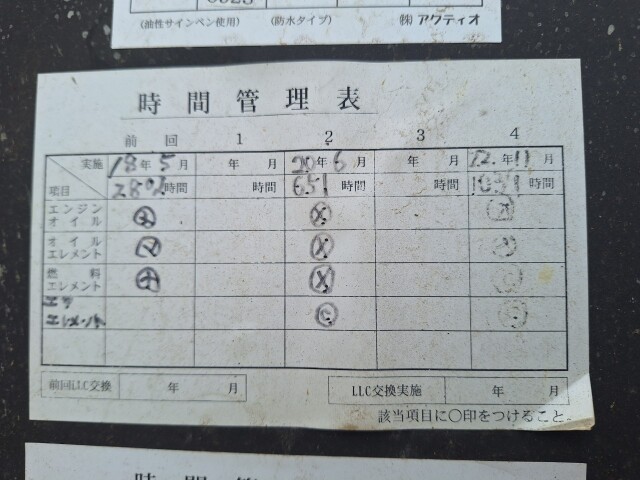 (油性サインペン使用) (防水タイプ) ㈱ アクティオ
時間管理表
前回 1 2 3 4
実施 18年5月 年 月 20年6月 年 月 22年11月
項目 時間 時間 651時間 時間 時間
エンジンオイル
オイルエレメント
燃料エレメント
エア エレメント
前回LLC交換 年 月 LLC交換実施 年 月
該当項目に〇印をつけること。
時間管